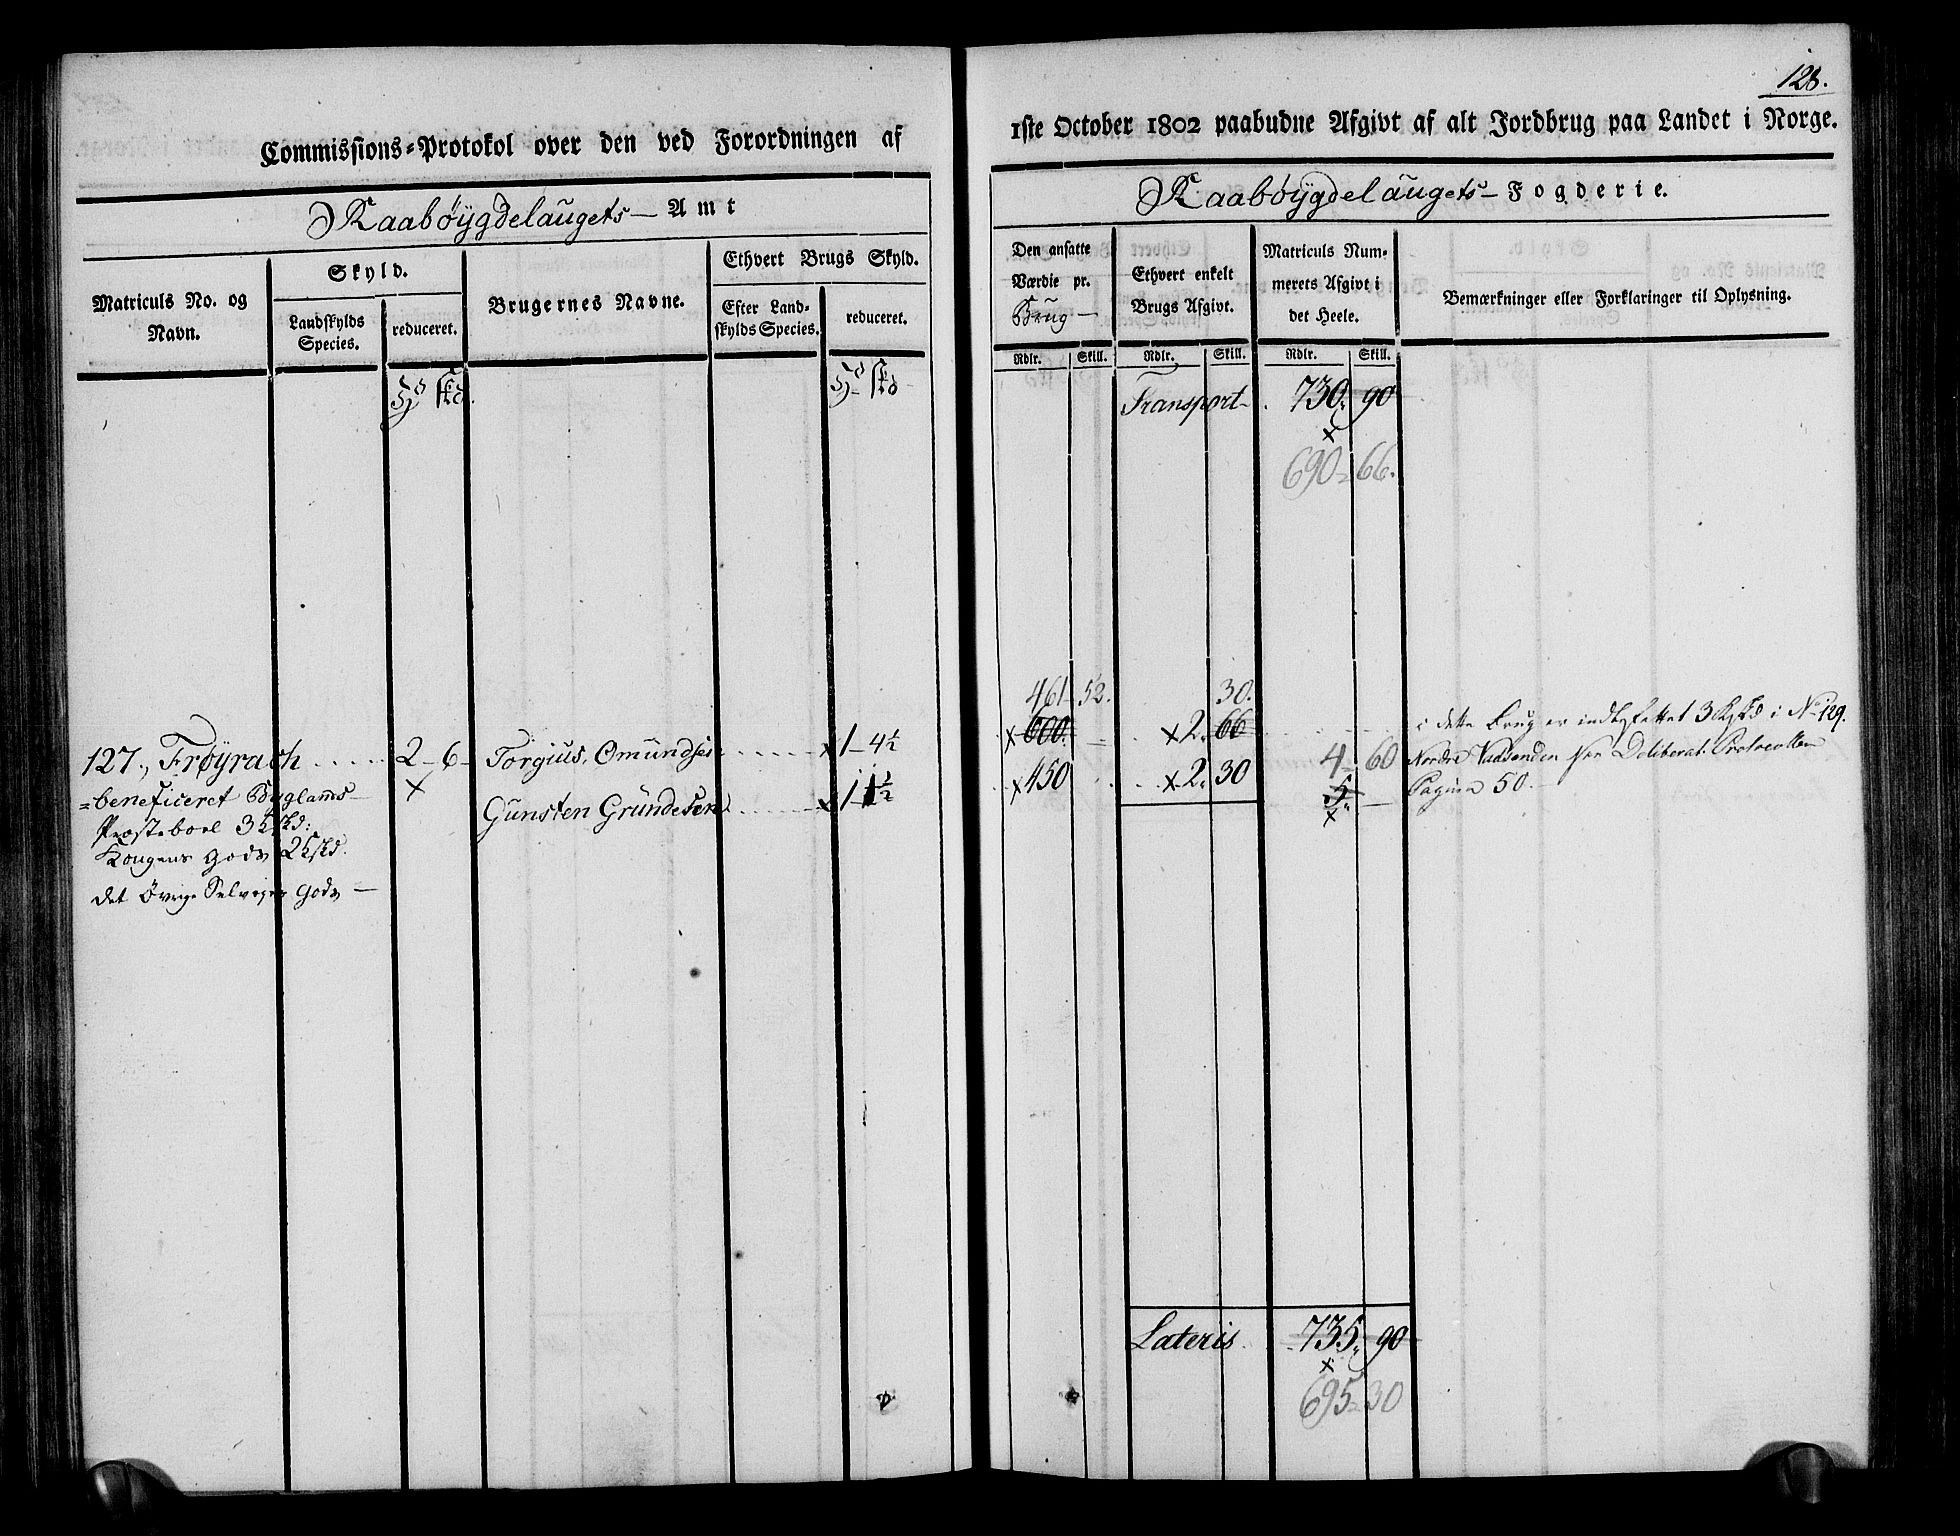 128.
Commissions-Protokol over den ved Forordningen af
1ste October 1802 paabudne Afgivt af alt Jordbrug paa Landet i Norge.
Raabøygdelaugets Amt
Raabøygdelaugets Fogderie.
Matriculs No. og Navn.
Skyld.
Landskylds Species.
reduceret.
Brugernes Navne.
Ethvert Brugs Skyld.
Efter Landskylds Species.
reduceret.
Den ansatte Værdie pr. Brug
Ethvert enkelt Brugs Afgivt.
Matriculs Nummerets Afgivt i det Heele.
Bemærkninger eller Forklaringer til Oplysning.
Rdlr. Skill. Rdlr. Skill. Rdlr. Skill.
Transport 730 90
690 66.
461 52. 30.
127., Frøyrach 2 6 Torgius Omundsen 1 4½ 600 2 66
beneficeret Byglands
Præsteboel 3 kskd:
Kongens gods 2 kskd.
det øvrige Selveyer gods
Gunsten Gundesen 1 1½ 450 2 30
4 60
5
i dette Brug er indbefattet 3 kskd i No 129.
Nordre Vadsenden Deliberat. Protocollen
Pagina 50.
Lateris 735 90
695 30